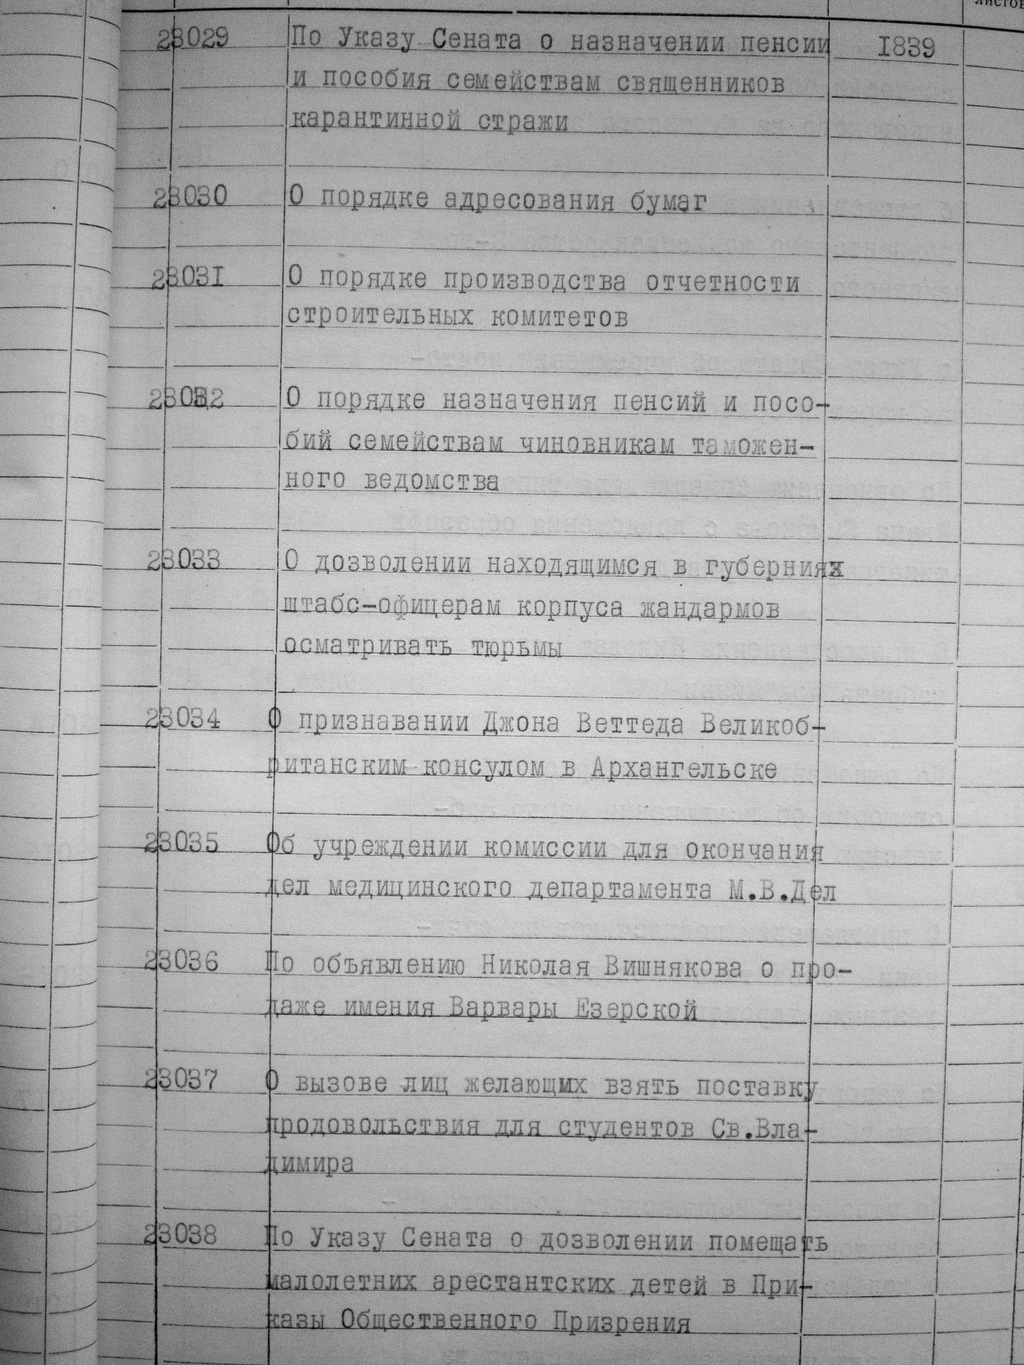 23029 По Указу Сената о назначении пенсии 1839
и пособия семействам священников
карантинной стражи
23030 О порядке адресования бумаг
23031 О порядке производства отчетности
строительных комитетов
23032 О порядке назначения пенсий и посо-
бий семействам чиновникам таможен-
ного ведомства
23033 О дозволении находящимся в губерниях
штабс-офицерам корпуса жандармов
осматривать тюрьмы
23034 О признавании Джона Веттеда Великоб-
ританским консулом в Архангельске
23035 Об учреждении комиссии для окончания
дел медицинского департамента М.В.Дел
23036 По объявлению Николая Вишнякова о про-
даже имения Варвары Езерской
23037 О вызове лиц желающих взять поставку
продовольствия для студентов Св.Вла-
димира
23038 По Указу Сената о дозволении помещать
малолетних арестантских детей в При-
казы Общественного Призрения